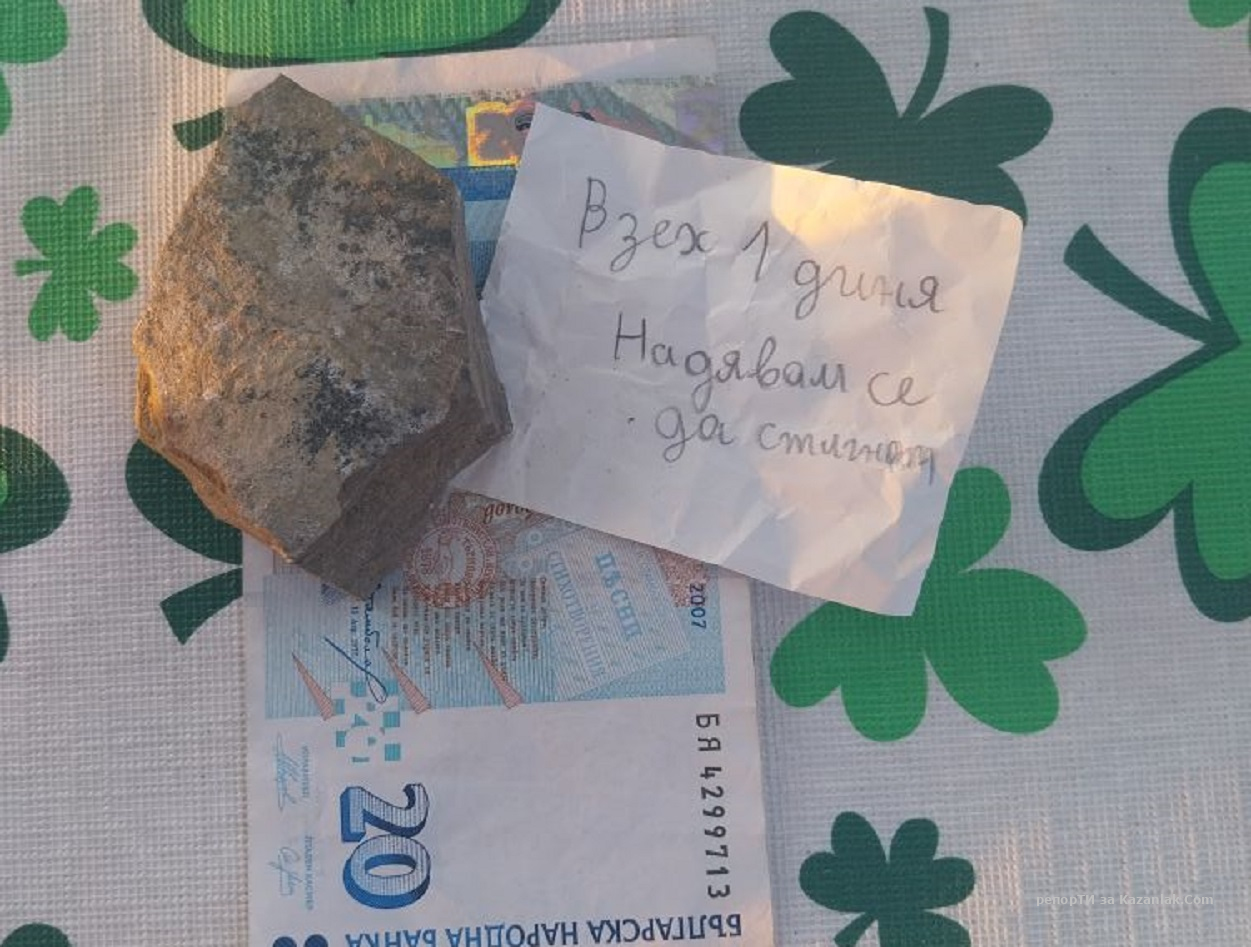 Взех 1 диня
Надявам се
да стигнат
ПѢСНИ
СТИХОТВОРЕНИЯ
2007
БЯ 4299713
20
БЪЛГАРСКА НАРОДНА БАНКА
репорТИ за Kazanlak.Com